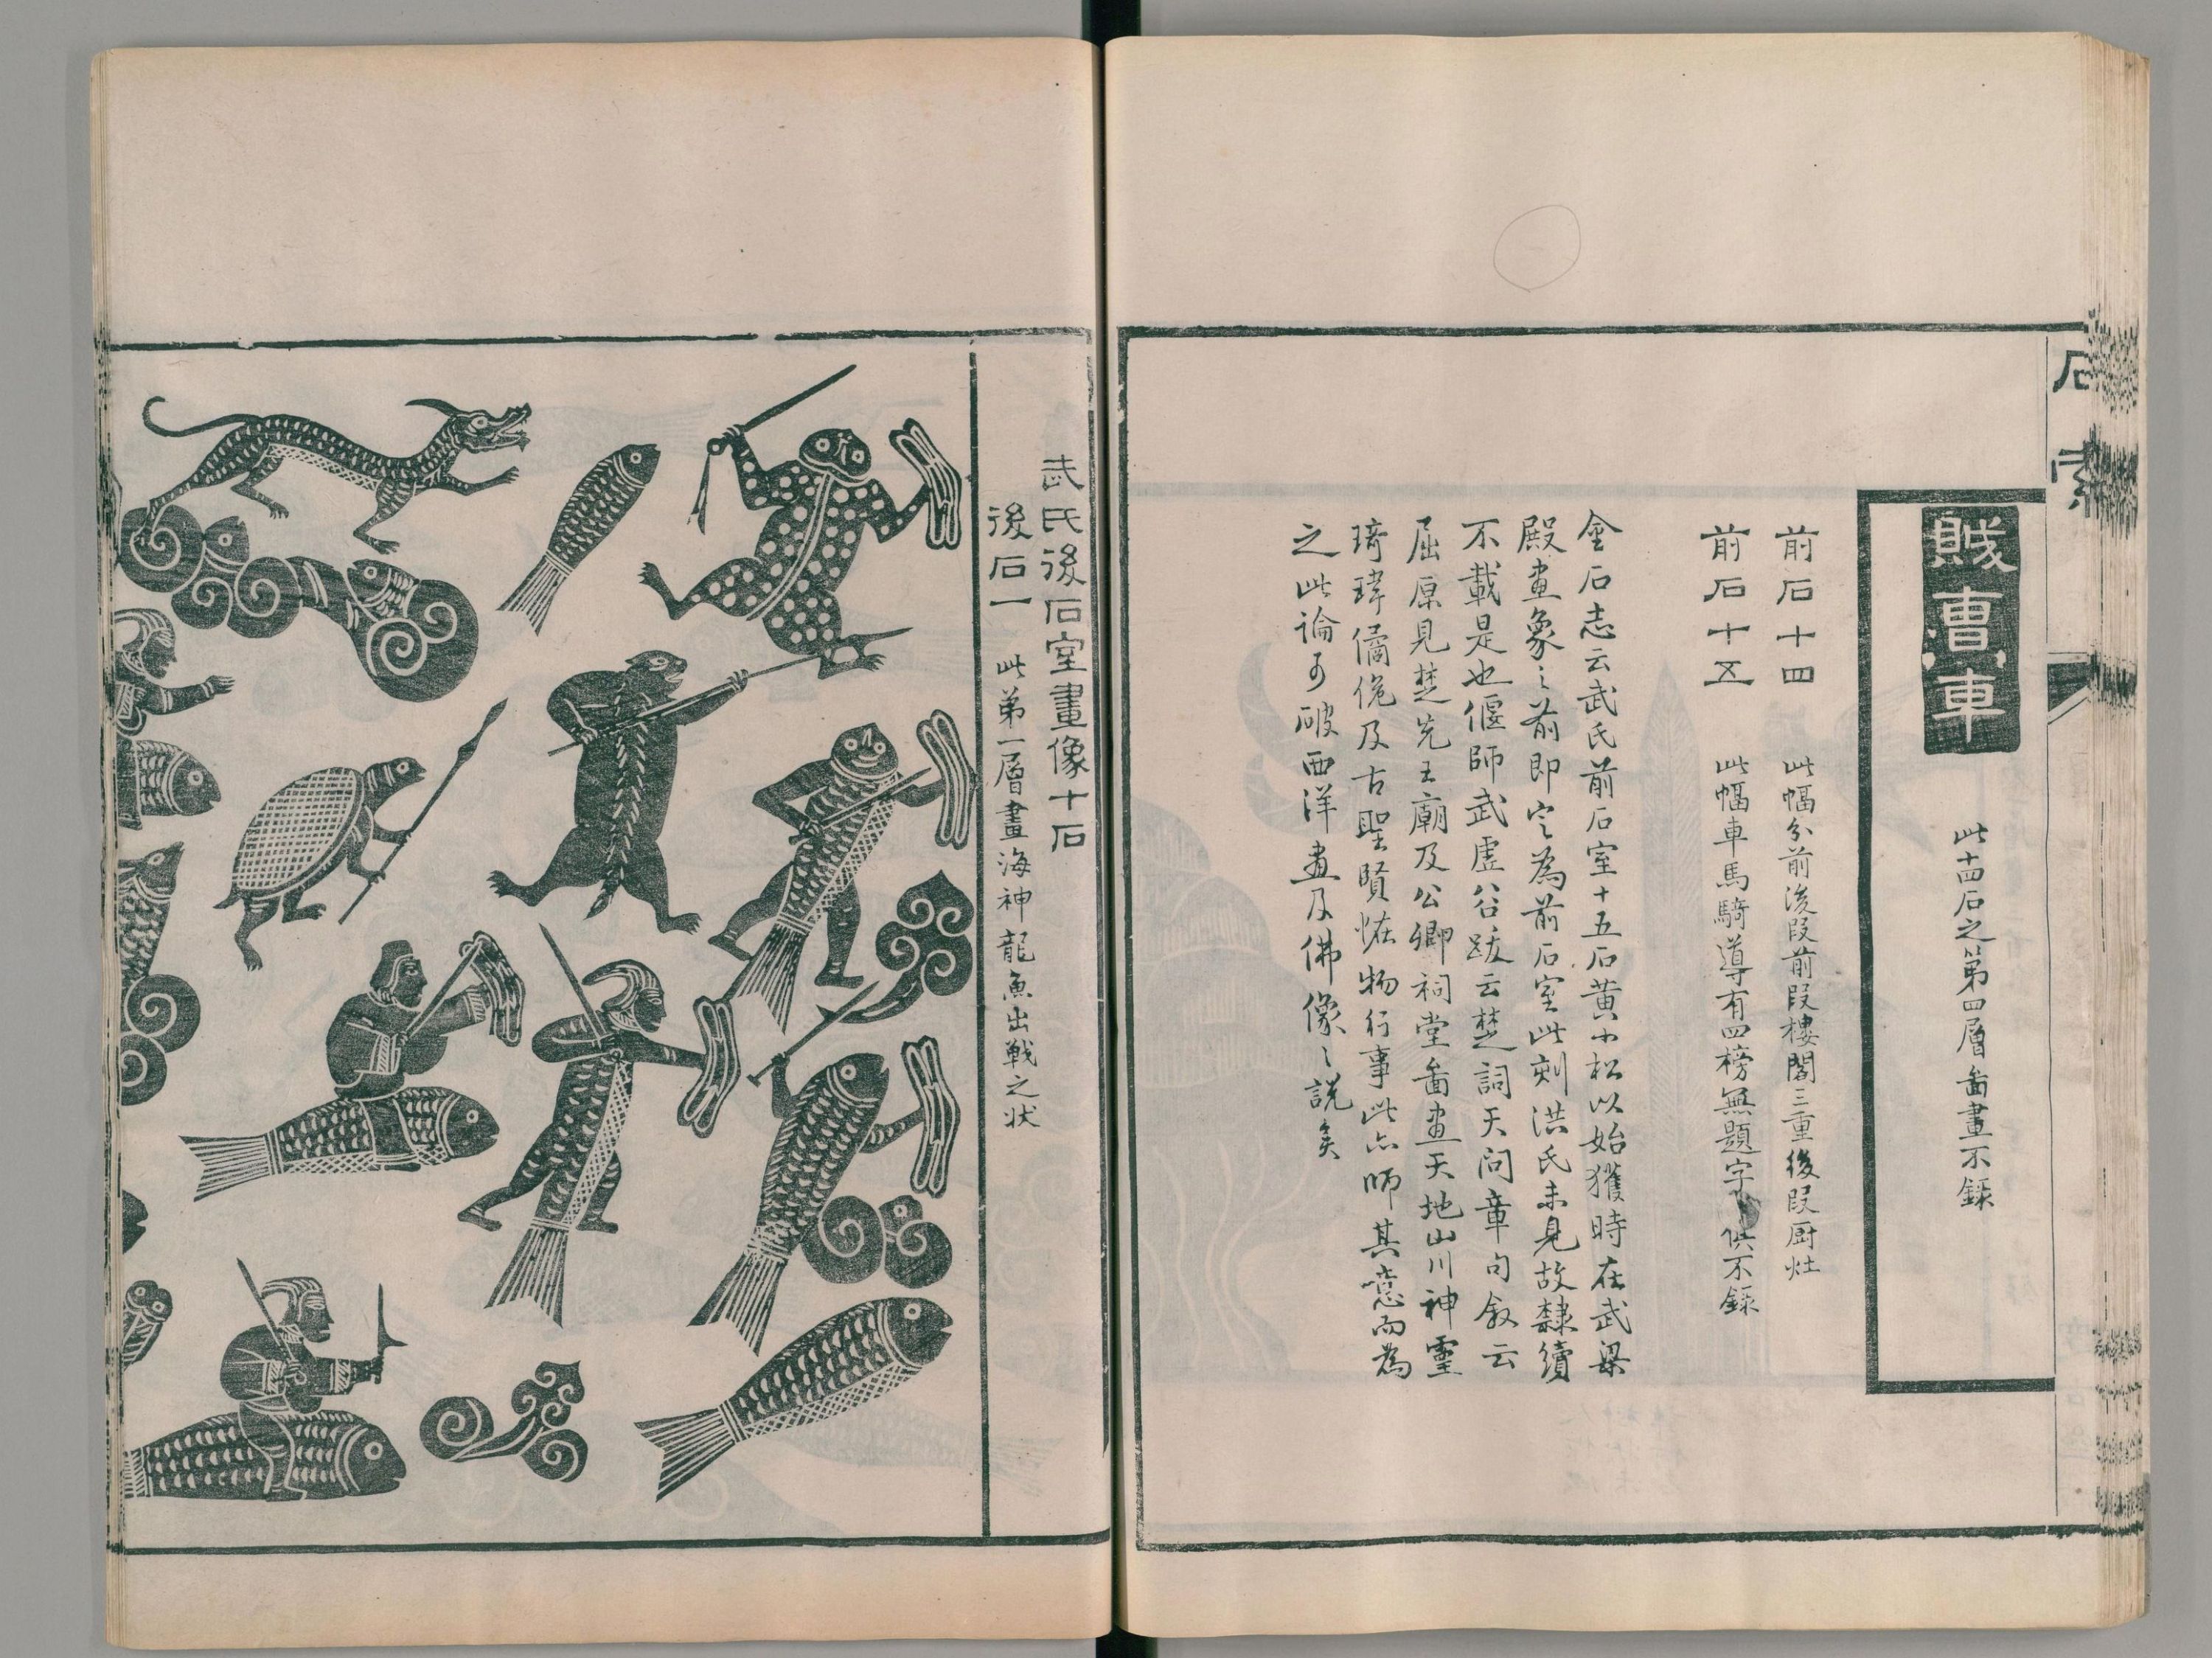 石索
賊曹車
此十四石之第四層畵畫不錄
前石十四 此幅分前後段前段樓閣三重後段厨灶
前石十五 此幅車馬騎導有四榜無題字 俱不錄
金石志云武氏前石室十五石黄小松以始獲時在武梁
殿畫象之前即定為前石室此刻洪氏未見故隸續
不載是也偃師武虚谷跋云楚詞天問章句敘云
屈原見楚先王廟及公卿祠堂畵畫天地山川神靈
琦瑋僪佹及古聖賢恠物行事此亦師其意而為
之此論可破西洋畫及佛像之說矣
武氏後石室畫像十石
後石一 此第一層畫海神龍魚出戰之状